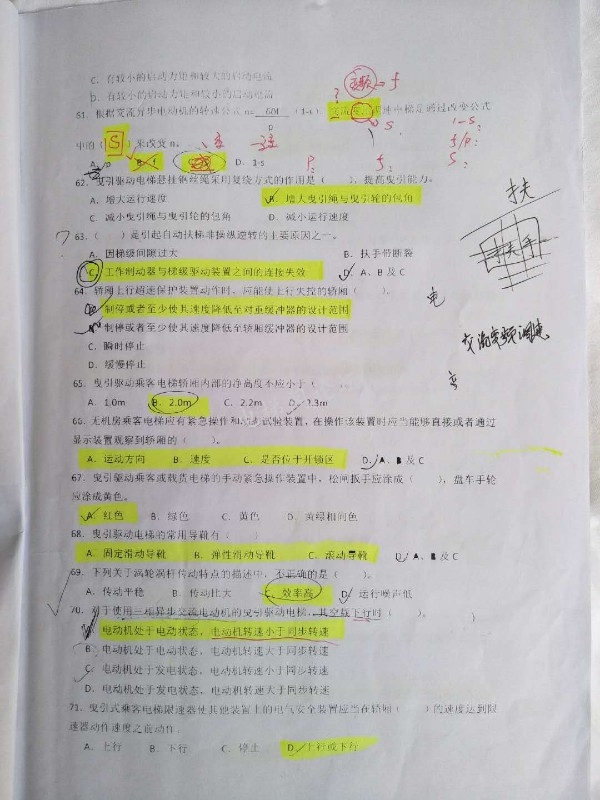 C. 有较小的启动力矩和较大的启动电流
D. 有较小的启动力矩和较小的启动电流
61. 根据交流异步电动机的转速公式 n= 60f (1-s), 交流变 调速电梯是通过改变公式
p
中的( S )来改变 n。
D. 1-s
62. 曳引驱动电梯悬挂钢丝绳采用复绕方式的作用是( ), 提高曳引能力。
A. 增大运行速度 B. 增大曳引绳与曳引轮的包角
C. 减小曳引绳与曳引轮的包角 D. 减小运行速度
63. ( )是引起自动扶梯非操纵逆转的主要原因之一。
A. 因梯级间隙过大 B. 扶手带断裂
C. 工作制动器与梯级驱动装置之间的连接失效 D. A、B 及 C
64. 轿厢上行超速保护装置动作时, 应能使上行失控的轿厢( )。
制停或者至少使其速度降低至对重缓冲器的设计范围
制停或者至少使其速度降低至轿厢缓冲器的设计范围
C. 瞬时停止
D. 缓慢停止
65. 曳引驱动乘客电梯轿厢内部的净高度不应小于( )。
A. 1.0m B. 2.0m C. 2.2m D. 2.3m
66. 无机房乘客电梯应有紧急操作和动态试验装置, 在操作该装置时应当能够直接或者通过
显示装置观察到轿厢的( )。
A. 运动方向 B. 速度 C. 是否位于开锁区 D. A、B 及 C
67. 曳引驱动乘客或载货电梯的手动紧急操作装置中, 松闸扳手应涂成( ), 盘车手轮
应涂成黄色。
A. 红色 B. 绿色 C. 黄色 D. 黄绿相间色
68. 曳引驱动电梯的常用导靴有( )
A. 固定滑动导靴 B. 弹性滑动导靴 C. 滚动导靴 D. A、B 及 C
69. 下列关于涡轮涡杆传动特点的描述中, 不正确的是( )。
A. 传动平稳 B. 传动比大 C. 效率高 D. 运行噪声低
70. 对于使用三相异步交流电动机的曳引驱动电梯, 其空载下行时( )。
电动机处于电动状态, 电动机转速小于同步转速
B. 电动机处于电动状态, 电动机转速大于同步转速
C. 电动机处于发电状态, 电动机转速小于同步转速
D. 电动机处于发电状态, 电动机转速大于同步转速
71. 曳引式乘客电梯限速器使其他装置上的电气安全装置应当在轿厢( )的速度达到限
速器动作速度之前动作。
A. 上行 B. 下行 C. 停止 D. 上行或下行